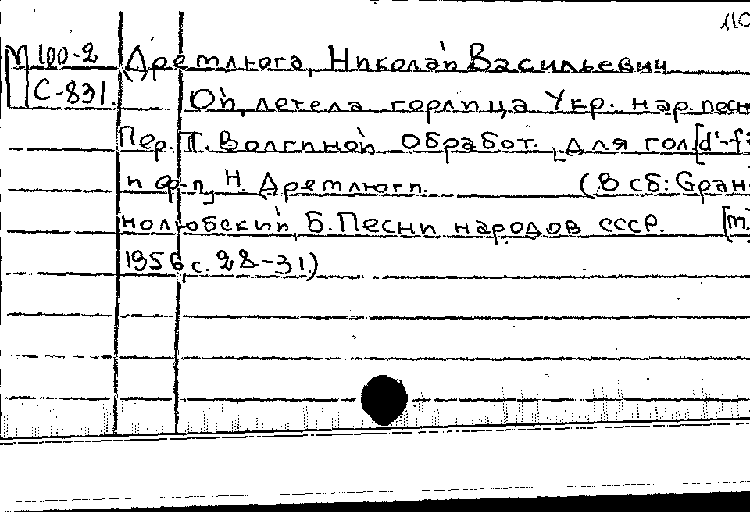 110
М 100-2 Дремлюга, Николай Васильевич
С-831. Ой, летела горлица. Укр. нар. песн
Пер. Т. Волгиной. Обработ. для гол [d'-f
и ф-п. Н. Дремлюги. (В сб: Гран-
нолюбский, Б. Песни народов СССР. [m
1956, с. 28-31)